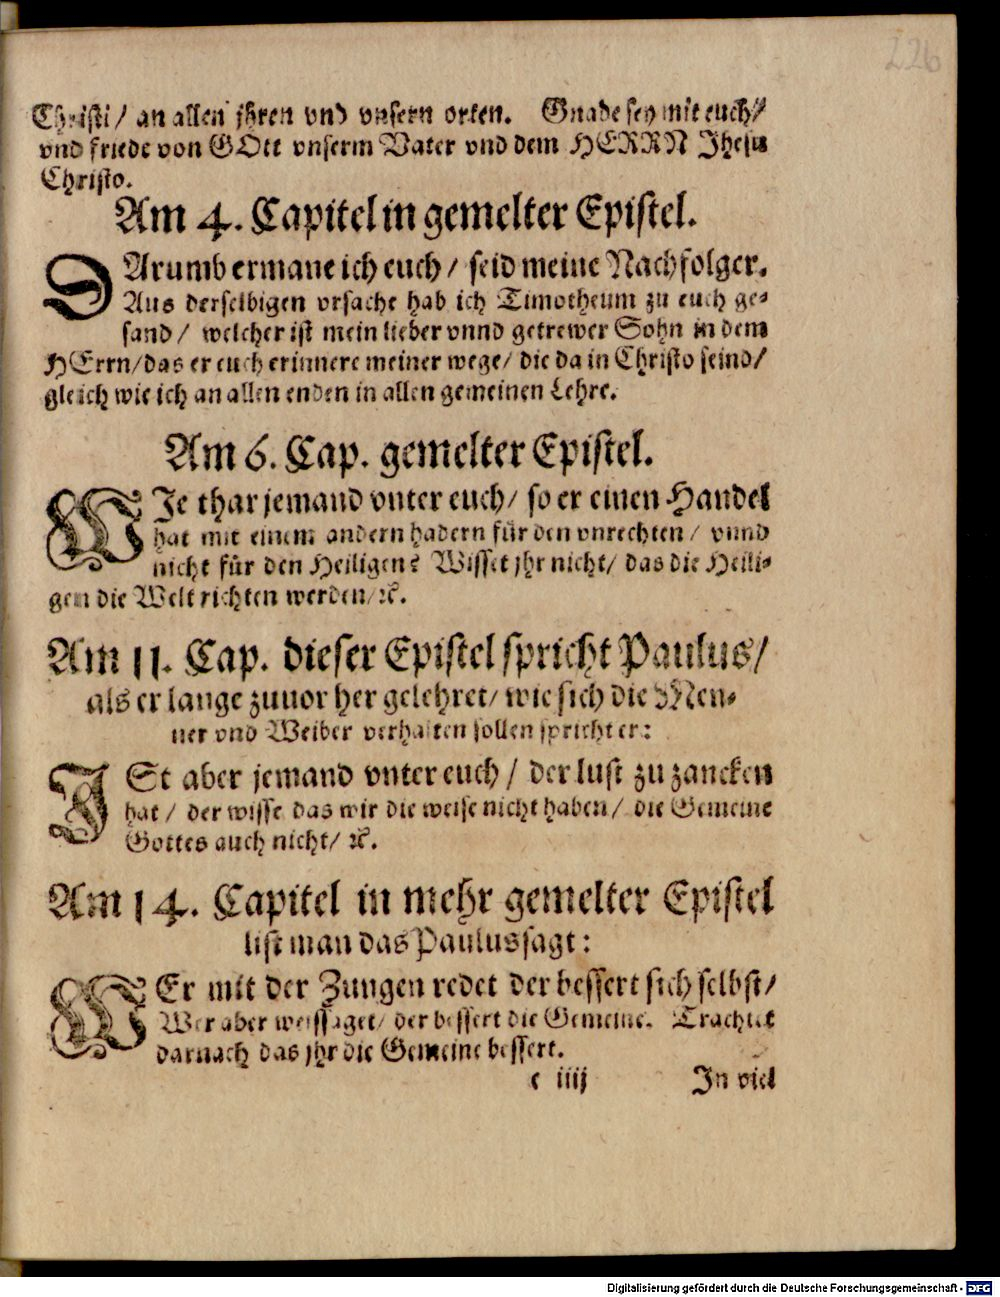 226
Christi / an allen jhren vnd vnsern orten. Gnade sey mit euch /
vnd friede von GOtt vnserm Vater vnd dem HERRN Jhesu
Christo.
Am 4. Capitel in gemelter Epistel.
DArumb ermane ich euch / seid meine Nachfolger.
Aus derselbigen vrsache hab ich Timotheum zu euch ge-
sand / welcher ist mein lieber vnnd getrewer Sohn in dem
HErrn / das er euch erinnere meiner wege / die da in Christo seind /
gleich wie ich an allen enden in allen gemeinen Lehre.
Am 6. Cap. gemelter Epistel.
WJe thar jemand vnter euch / so er einen Handel
hat mit einem andern hadern für den vnrechten / vnnd
nicht für den Heiligen? Wisset jhr nicht / das die Heili-
gen die Welt richten werden / ꝛc.
Am 11. Cap. dieser Epistel spricht Paulus /
als er lange zuuor her gelehret / wie sich die Men-
ner vnd Weiber verhalten sollen spricht er:
JSt aber jemand vnter euch / der lust zu zancken
hat / der wisse das wir die weise nicht haben / die Gemeine
Gottes auch nicht / ꝛc.
Am 14. Capitel in mehr gemelter Epistel
list man das Paulus sagt:
WEr mit der Zungen redet der bessert sich selbst /
Wer aber weissaget / der bessert die Gemeine. Trachtet
darnach das jhr die Gemeine bessert.
c iiij In viel
Digitalisierung gefördert durch die Deutsche Forschungsgemeinschaft - DFG